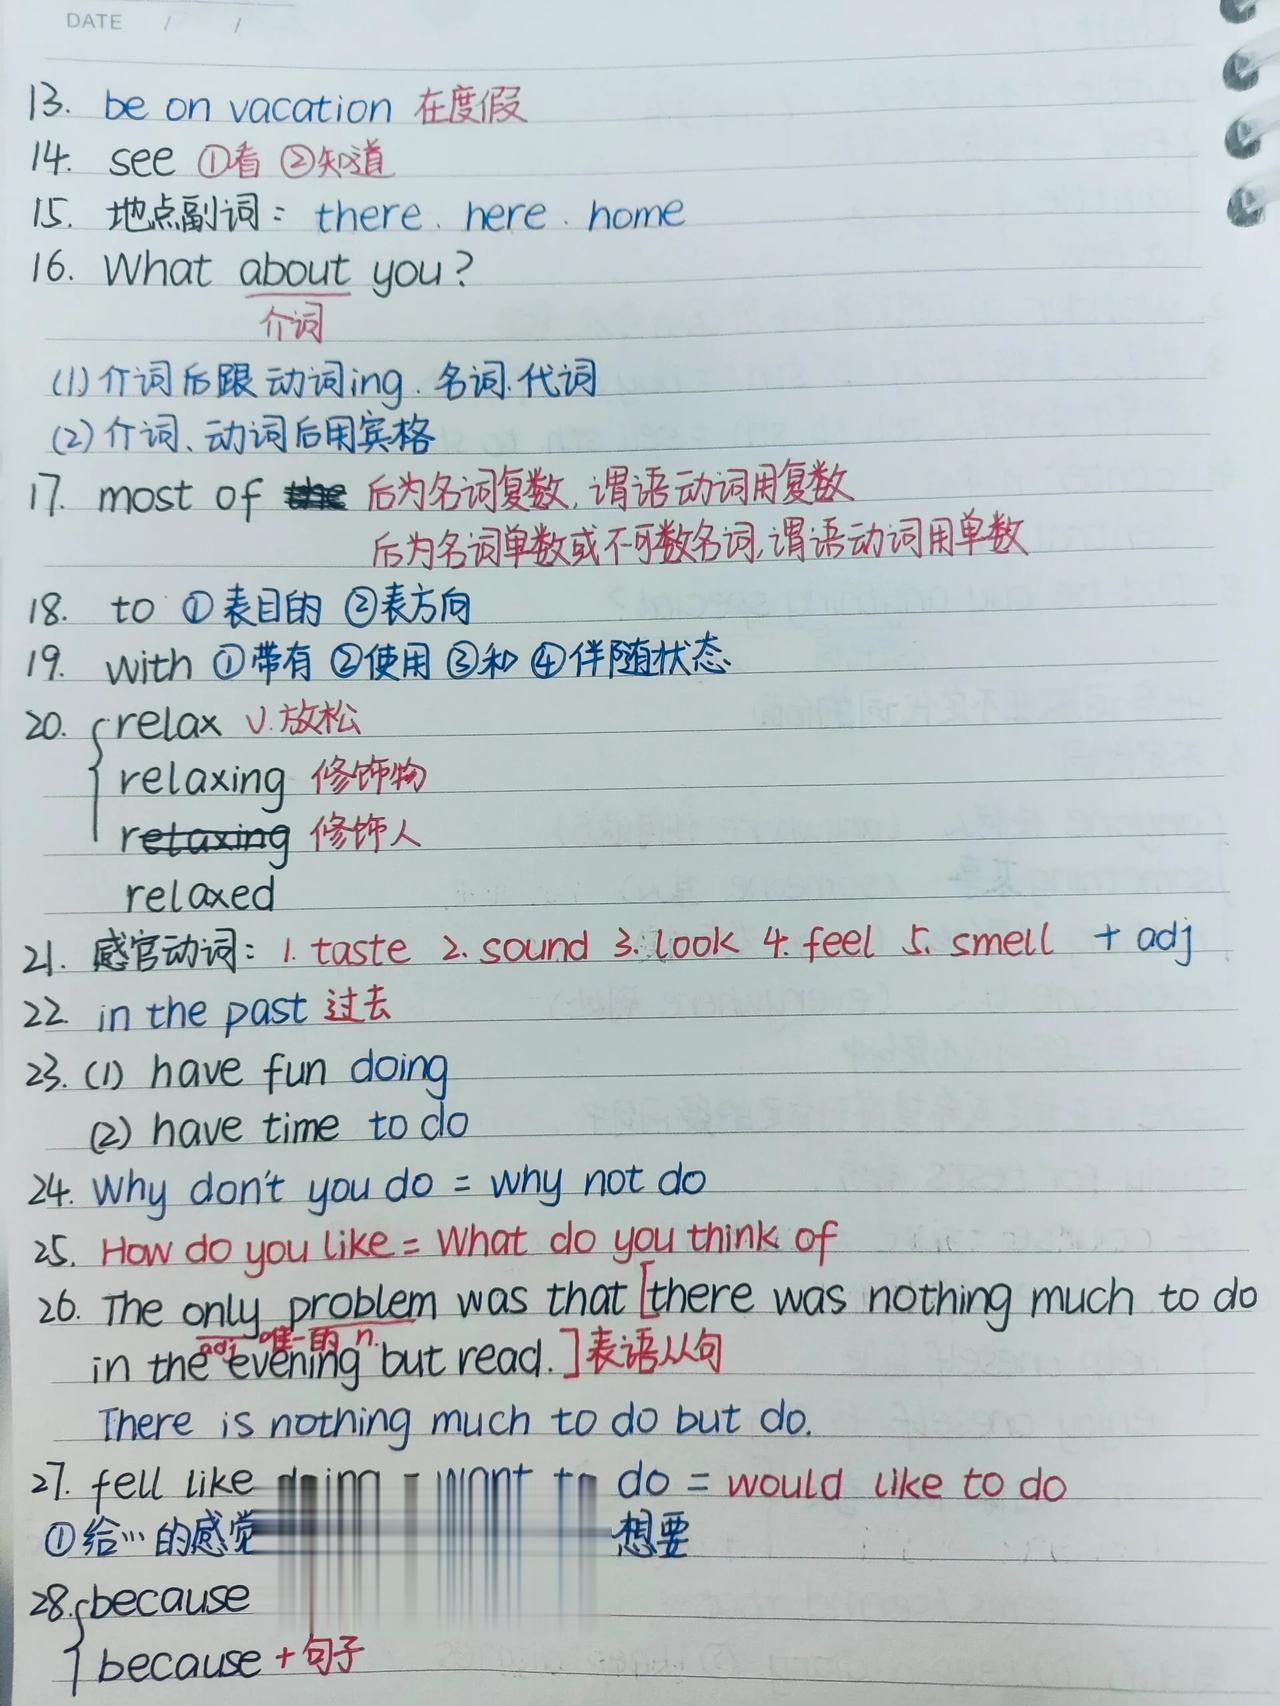 DATE / /
13. be on vacation 在度假
14. see ①看 ②知道
15. 地点副词: there. here. home
16. What about you?
介词
(1) 介词后跟动词ing.名词.代词
(2) 介词、动词后用宾格
17. most of the 后为名词复数,谓语动词用复数
后为名词单数或不可数名词,谓语动词用单数
18. to ①表目的 ②表方向
19. with ①带有 ②使用 ③和 ④伴随状态
20. relax v.放松
relaxing 修饰物
relaxing 修饰人
relaxed
21. 感官动词: 1. taste 2. sound 3. look 4. feel 5. smell + adj
22. in the past 过去
23. (1) have fun doing
(2) have time to do
24. Why don't you do = why not do
25. How do you like = What do you think of
26. The only problem was that [there was nothing much to do
adj 唯一的 n.
in the evening but read.]表语从句
There is nothing much to do but do.
27. fell like doing = want to do = would like to do
①给…的感觉 想要
28. because
because + 句子